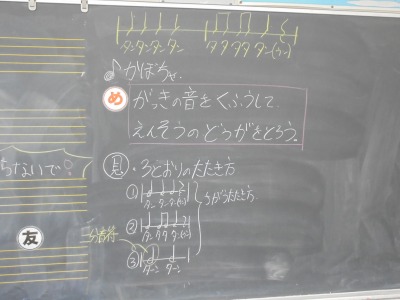 タンタンタンタン タタタタタン(ウン)
♪かぼちゃ
め がっきの音をくふうして
えんそうのどうがをとろう。
見・3とおりのたたき方
らないで
①
タンタンタン(ウン)
ちがうたたき方
②
タンタタタン(ウン)
友
二分音符
③
ターンターン